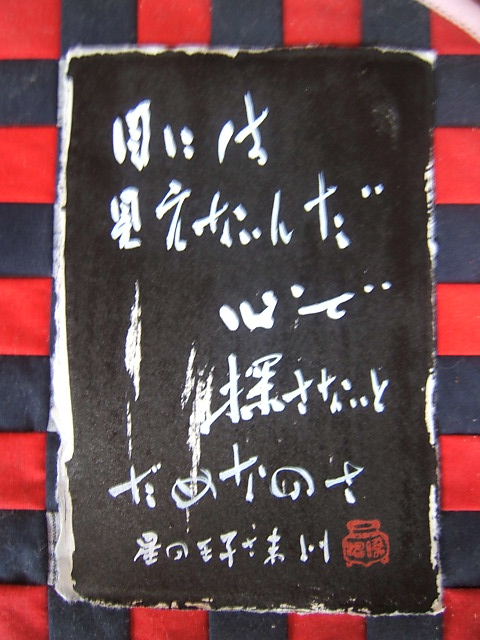 目には
見えないんだ
心で
探さないと
だめなのさ
星の王子さま より